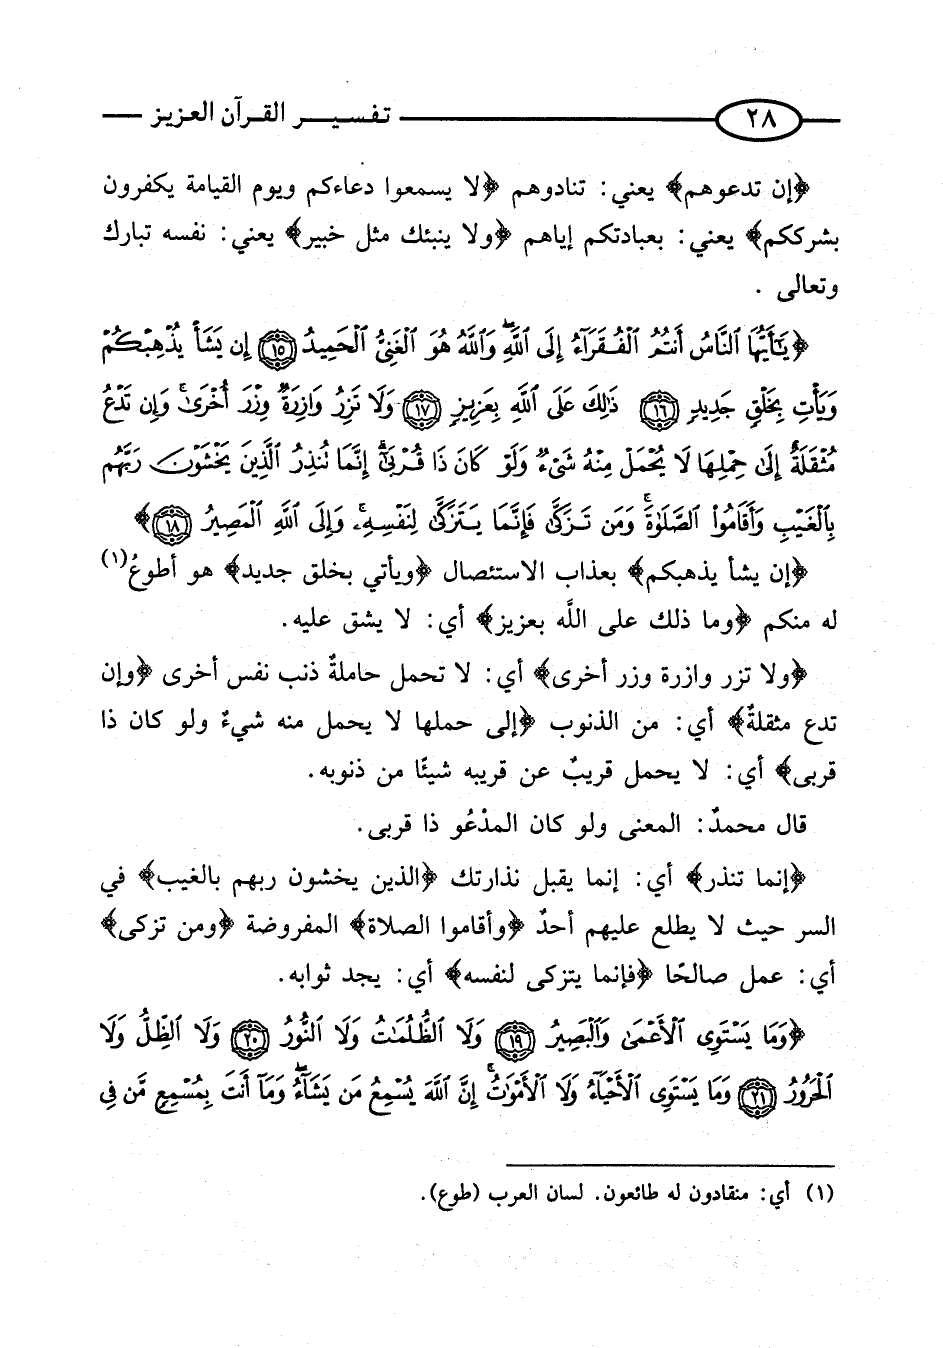 ٢٨ تفسير القرآن العزيز
﴿إن تدعوهم﴾ يعني: تنادوهم ﴿لا يسمعوا دعاءكم ويوم القيامة يكفرون
بشرككم﴾ يعني: بعبادتكم إياهم ﴿ولا ينبئك مثل خبير﴾ يعني: نفسه تبارك
وتعالى .
﴿يَٰٓأَيُّهَا ٱلنَّاسُ أَنتُمُ ٱلْفُقَرَآءُ إِلَى ٱللَّهِ ۖ وَٱللَّهُ هُوَ ٱلْغَنِىُّ ٱلْحَمِيدُ ١٥ إِن يَشَأْ يُذْهِبْكُمْ
وَيَأْتِ بِخَلْقٍ جَدِيدٍ ١٦ ذَٰلِكَ عَلَى ٱللَّهِ بِعَزِيزٍ ١٧ وَلَا تَزِرُ وَازِرَةٌ وِزْرَ أُخْرَىٰ ۚ وَإِن تَدْعُ
مُثْقَلَةٌ إِلَىٰ حِمْلِهَا لَا يُحْمَلْ مِنْهُ شَىْءٌ وَلَوْ كَانَ ذَا قُرْبَىٰٓ ۗ إِنَّمَا تُنذِرُ ٱلَّذِينَ يَخْشَوْنَ رَبَّهُم
بِٱلْغَيْبِ وَأَقَامُوا۟ ٱلصَّلَوٰةَ ۚ وَمَن تَزَكَّىٰ فَإِنَّمَا يَتَزَكَّىٰ لِنَفْسِهِۦ ۚ وَإِلَى ٱللَّهِ ٱلْمَصِيرُ ١٨﴾
﴿إن يشأ يذهبكم﴾ بعذاب الاستئصال ﴿ويأتي بخلق جديد﴾ هو أطوعُ(١)
له منكم ﴿وما ذلك على اللَّه بعزيز﴾ أي: لا يشق عليه.
﴿ولا تزر وازرة وزر أخرى﴾ أي: لا تحمل حاملةٌ ذنب نفس أخرى ﴿وإن
تدع مثقلةٌ﴾ أي: من الذنوب ﴿إلى حملها لا يحمل منه شيءٌ ولو كان ذا
قربى﴾ أي: لا يحمل قريبٌ عن قريبه شيئًا من ذنوبه.
قال محمدٌ: المعنى ولو كان المدْعُو ذا قربى.
﴿إنما تنذر﴾ أي: إنما يقبل نذارتك ﴿الذين يخشون ربهم بالغيب﴾ في
السر حيث لا يطلع عليهم أحدٌ ﴿وأقاموا الصلاة﴾ المفروضة ﴿ومن تزكى﴾
أي: عمل صالحًا ﴿فإنما يتزكى لنفسه﴾ أي: يجد ثوابه.
﴿وَمَا يَسْتَوِى ٱلْأَعْمَىٰ وَٱلْبَصِيرُ ١٩ وَلَا ٱلظُّلُمَٰتُ وَلَا ٱلنُّورُ ٢٠ وَلَا ٱلظِّلُّ وَلَا
ٱلْحَرُورُ ٢١ وَمَا يَسْتَوِى ٱلْأَحْيَآءُ وَلَا ٱلْأَمْوَٰتُ ۚ إِنَّ ٱللَّهَ يُسْمِعُ مَن يَشَآءُ ۖ وَمَآ أَنتَ بِمُسْمِعٍ مَّن فِى
(١) أي: منقادون له طائعون. لسان العرب (طوع).